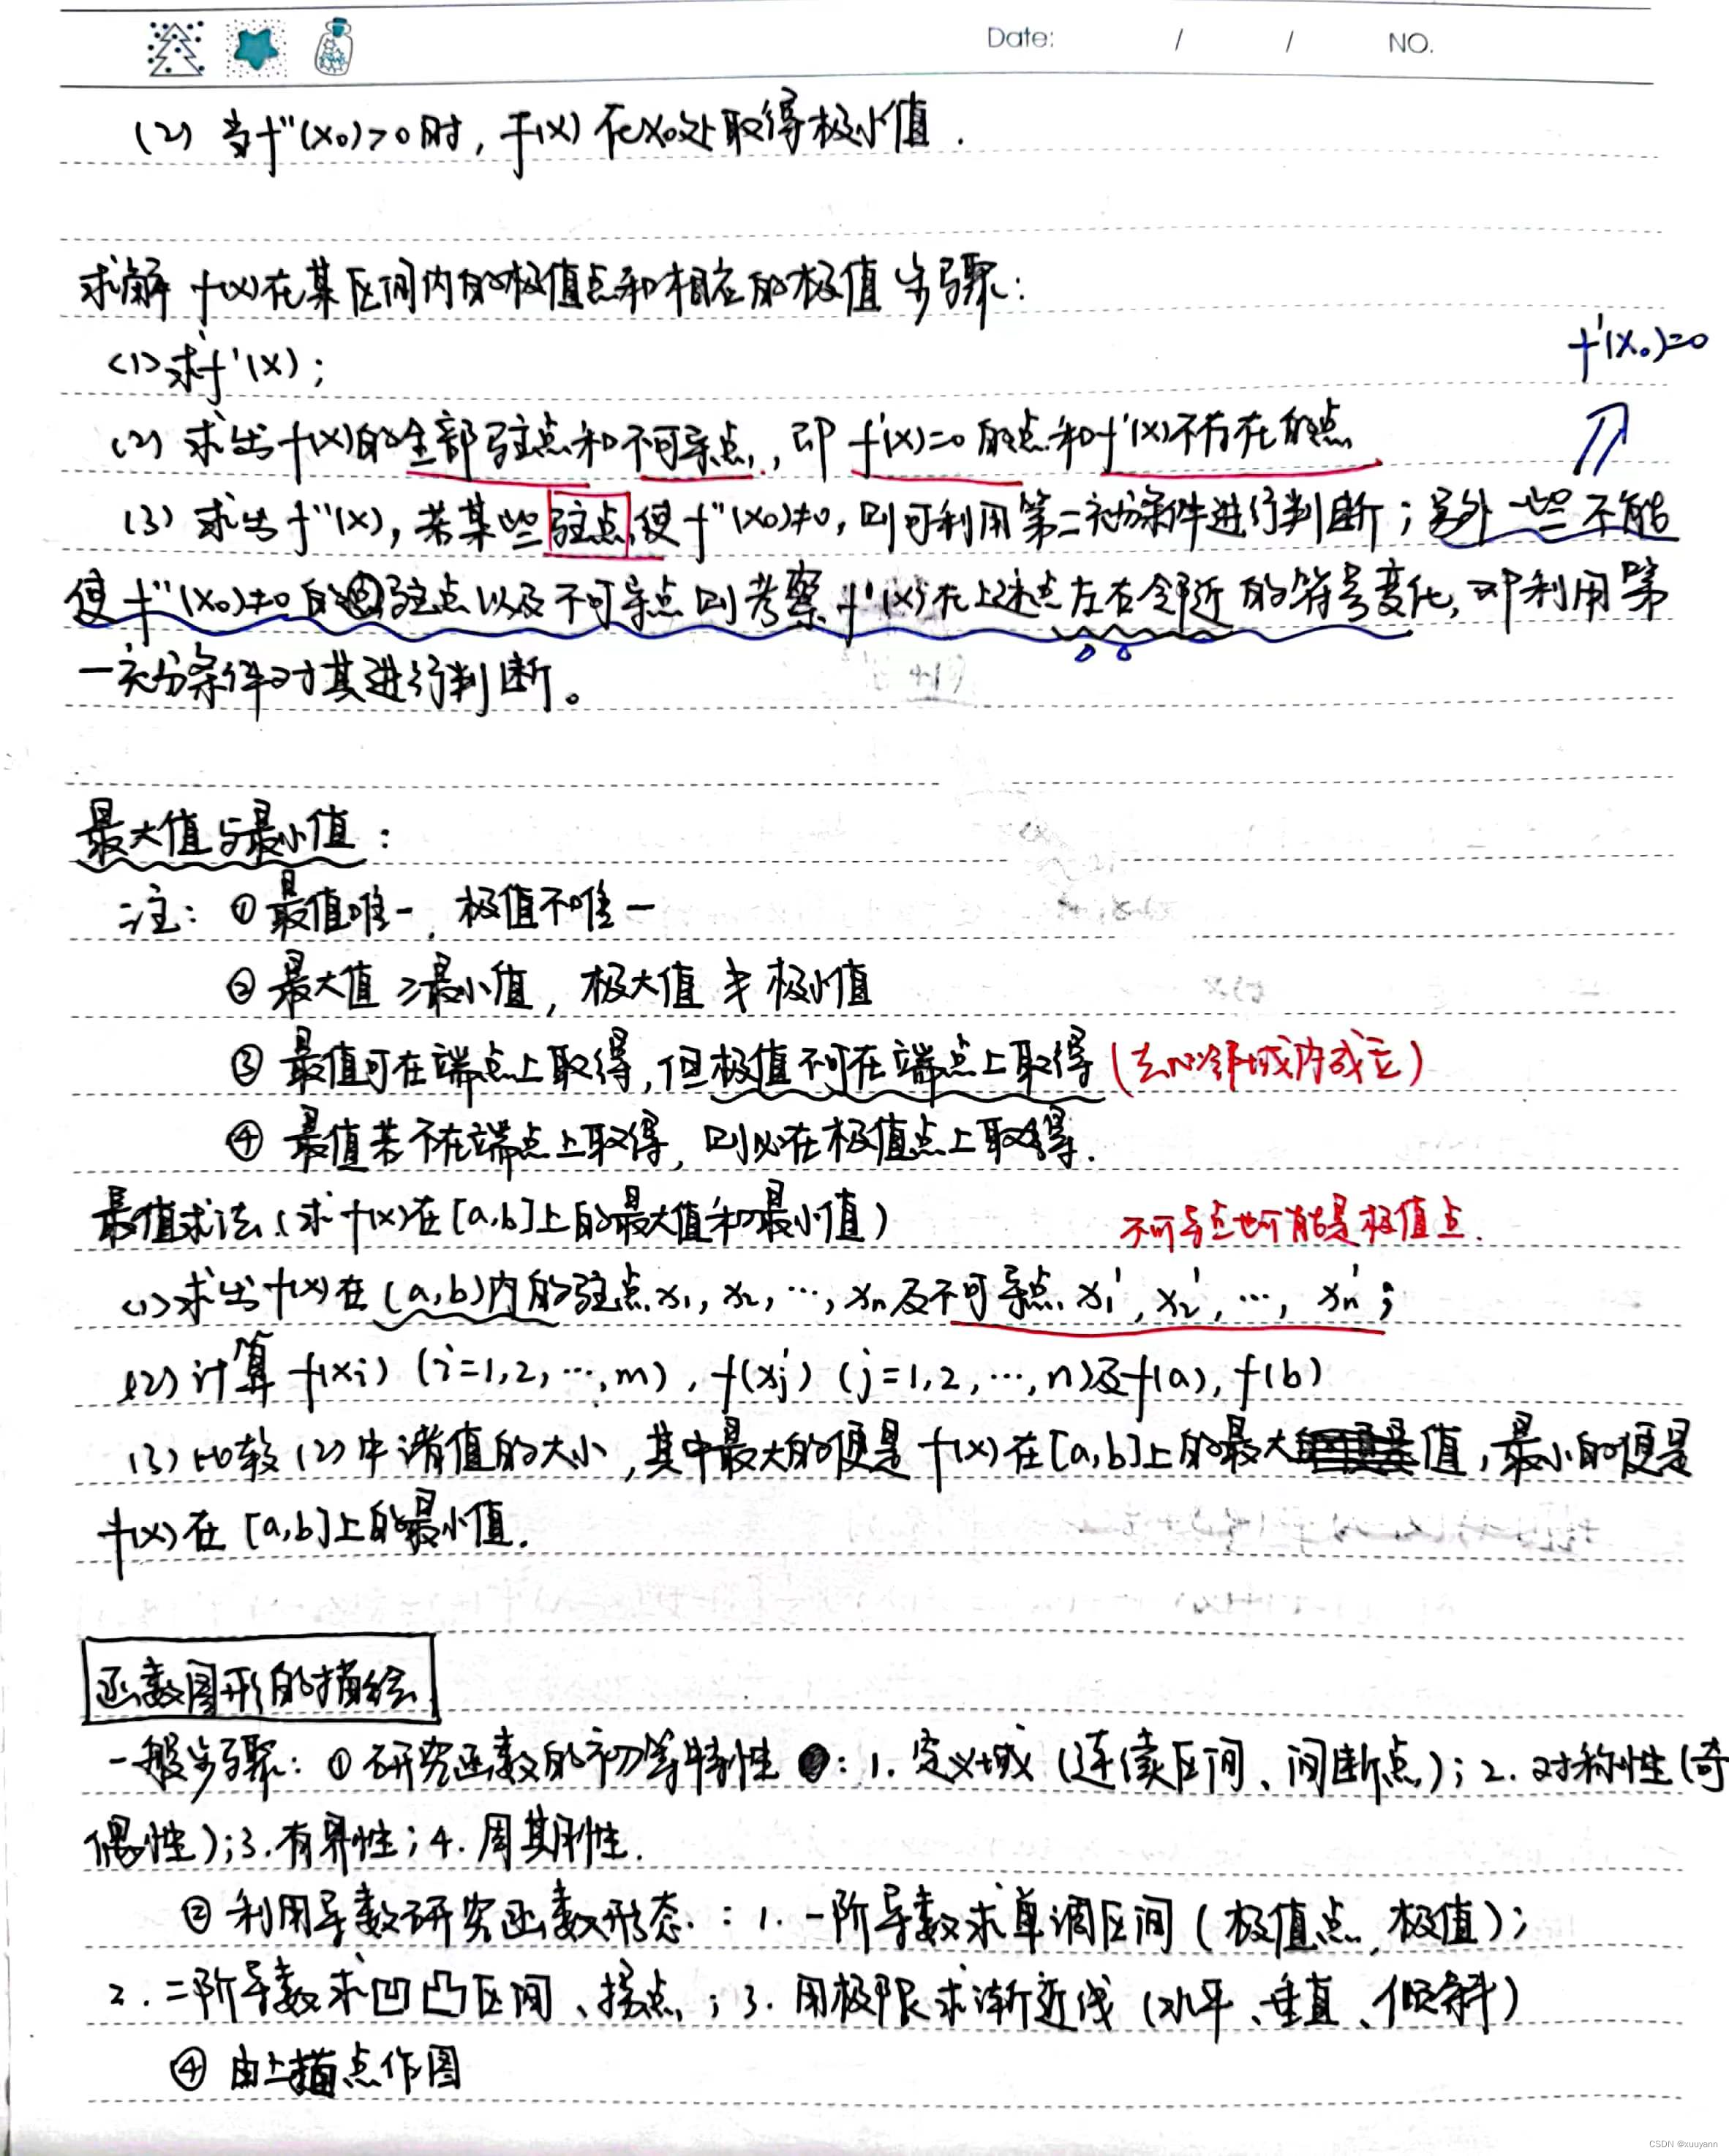 Date: / / NO.
(2) 当f''(x₀)>0时, f(x) 在x₀处取得极小值.
求解 f(x)在某区间内的极值点和相应的极值步骤:
<1>求f'(x);
f'(x₀)=0
(2) 求出f(x)的全部驻点和不可导点, 即 f'(x)=0的点和f'(x)不存在的点
(3) 求出f''(x), 若某些驻点使f''(x₀)≠0, 则可利用第二充分条件进行判断; 另外一些不能
使f''(x₀)≠0的驻点以及不可导点则考察f'(x)在上述点左右邻近的符号变化, 即利用第
一充分条件对其进行判断。
最大值与最小值:
注: ①最值唯一, 极值不唯一
②最大值≥最小值, 极大值 极小值
③ 最值可在端点上取得, 但极值不可在端点上取得 (去心邻域内成立)
④ 最值若不在端点上取得, 则必在极值点上取得.
最值求法 (求f(x)在[a,b]上的最大值和最小值)
不可导点也可能是极值点.
<1>求出f(x)在(a,b)内的驻点x₁, x₂, …, xₙ及不可导点x₁', x₂', …, xₙ';
(2) 计算f(xi) (i=1,2,…,m), f(xj') (j=1,2,…,n)及f(a), f(b)
(3) 比较(2)中诸值的大小, 其中最大的便是f(x)在[a,b]上的最大值, 最小的便是
f(x)在[a,b]上的最小值.
函数图形的描绘
一般步骤: ①研究函数的初等特性: 1. 定义域 (连续区间、间断点); 2. 对称性(奇
偶性); 3. 有界性; 4. 周期性.
② 利用导数研究函数形态: 1. 一阶导数求单调区间 (极值点, 极值);
2. 二阶导数求凹凸区间、拐点; 3. 用极限求渐近线 (水平、垂直、倾斜)
④ 由上描点作图
CSDN @xuuyann